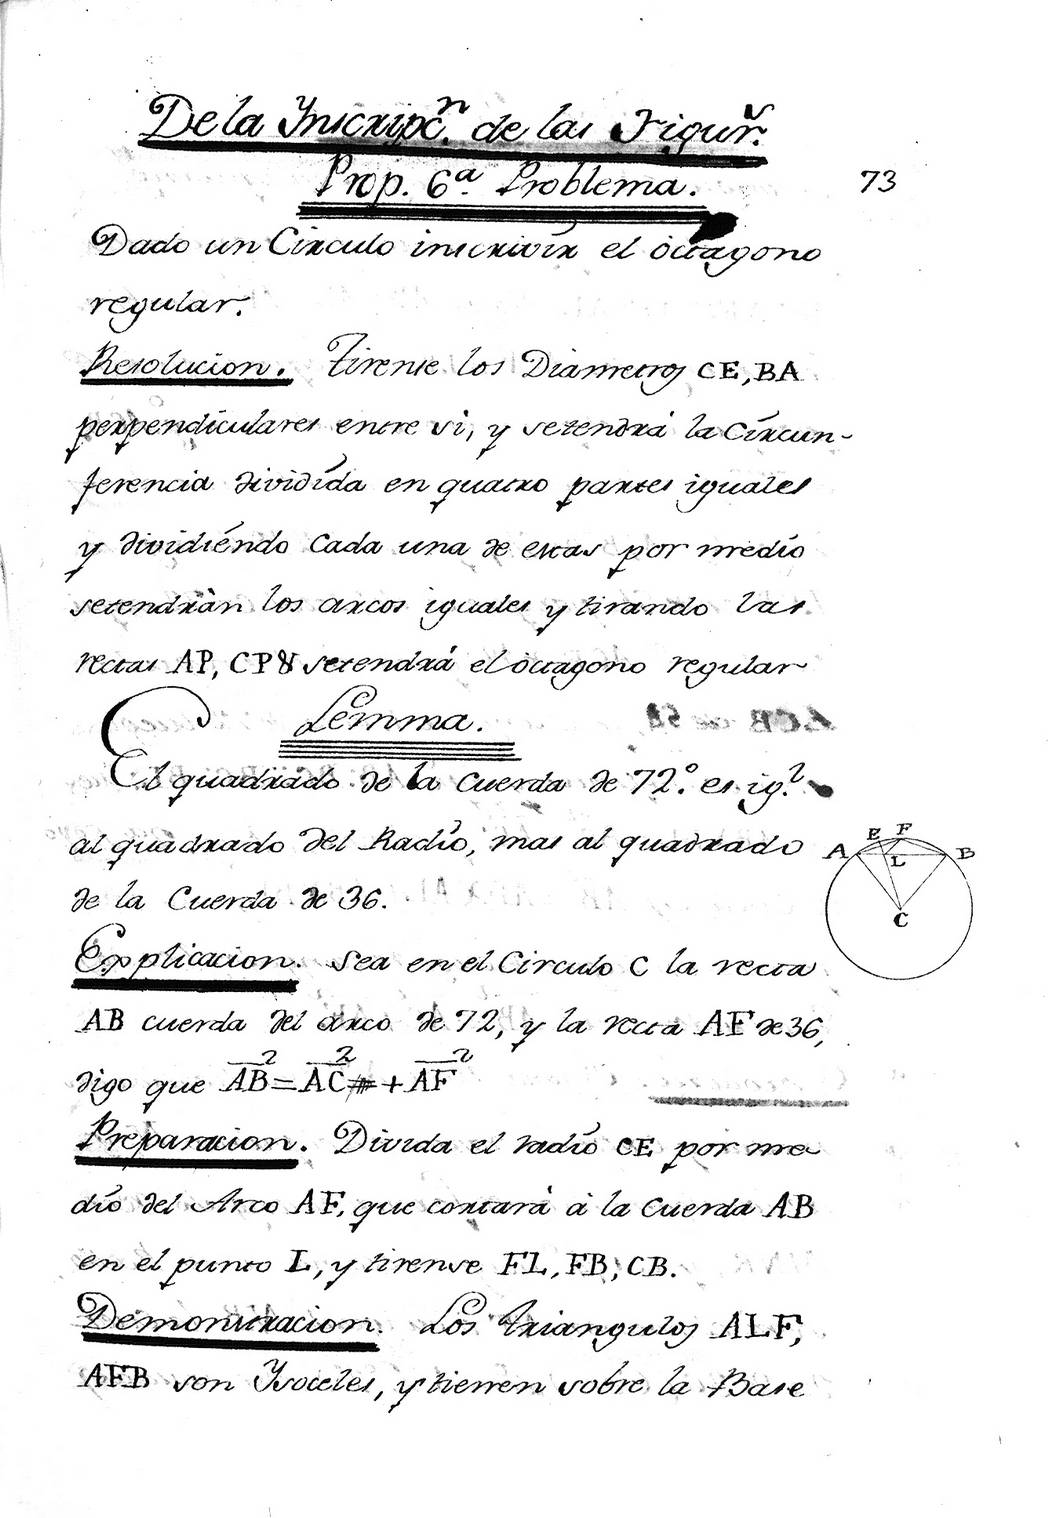 De la Inscripc.ⁿ de las Figur.ˢ
Prop. 6ª Problema.
73
Dado un Circulo inscrivir el octagono
regular.
Resolucion. Tirense los Diametros CE, BA
perpendiculares entre si, y setendrà la Circun-
ferencia dividida en quatro partes iguales
y dividiendo cada una de estas por medio
setendràn los arcos iguales y tirando las
rectas AP, CP& setendrá el octagono regular
Lemma.
El quadrado de la Cuerda de 72.° es ig.ˡ
al quadrado del Radio, mas al quadrado
de la Cuerda de 36.
Explicacion. Sea en el Circulo C la recta
AB cuerda del arco de 72, y la recta AF de 36,
digo que A̅B̅² = A̅C̅² + A̅F̅²
Preparacion. Divida el radio CE por me
dio del Arco AF, que cortarà à la Cuerda AB
en el punto L, y tirense FL, FB, CB.
Demonstracion. Los triangulos ALF,
AFB son Ysoceles, y tienen sobre la Base
E F
A L B
C